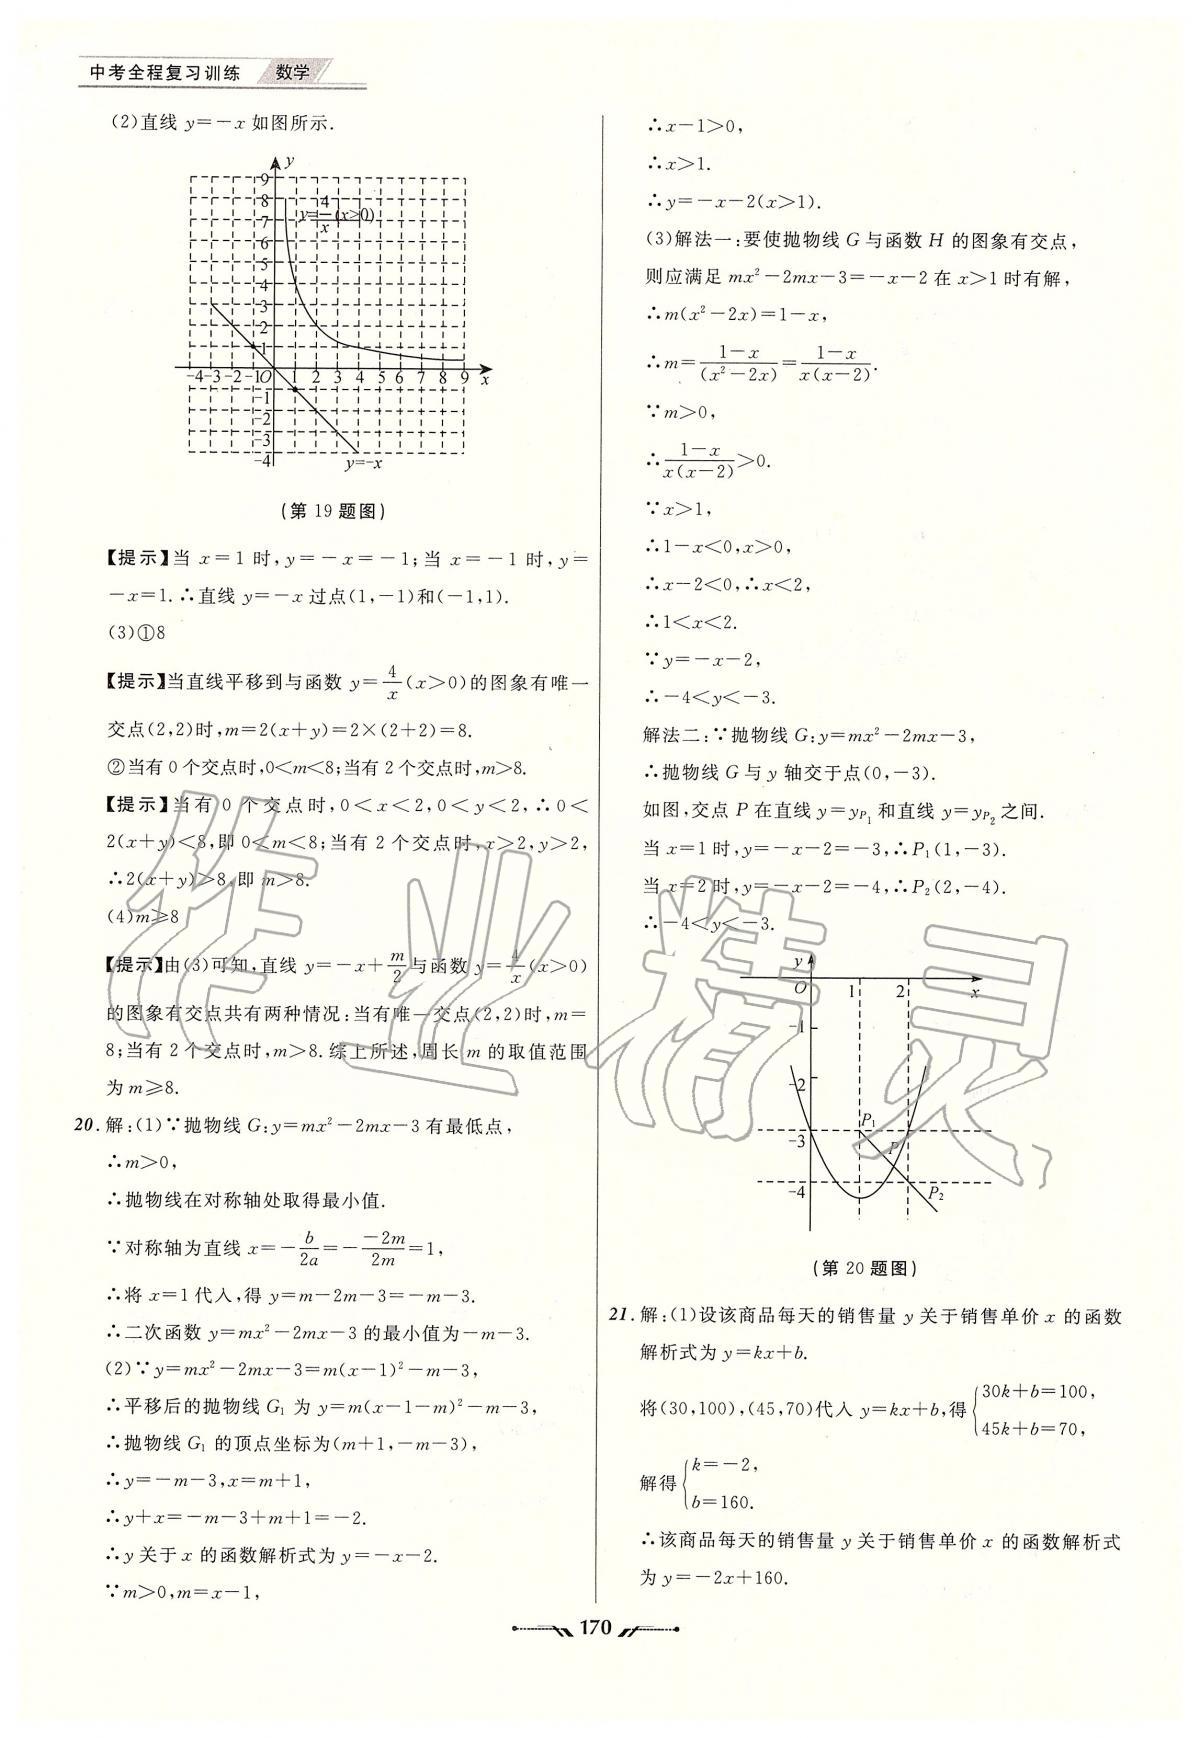 中考全程复习训练 数学
(2)直线 y=-x 如图所示.
y
9
8
7
6
5
4
3
2
1
y=4/x(x>0)
-4-3-2-1O 1 2 3 4 5 6 7 8 9 x
-1
-2
-3
-4
y=-x
(第 19 题图)
【提示】当 x=1 时,y=-x=-1;当 x=-1 时,y=
-x=1.∴直线 y=-x 过点(1,-1)和(-1,1).
(3)①8
【提示】当直线平移到与函数 y=4/x(x>0)的图象有唯一
交点(2,2)时,m=2(x+y)=2×(2+2)=8.
②当有 0 个交点时,0<m<8;当有 2 个交点时,m>8.
【提示】当有 0 个交点时,0<x<2,0<y<2,∴0<
2(x+y)<8,即 0<m<8;当有 2 个交点时,x>2,y>2,
∴2(x+y)>8,即 m>8.
(4)m≥8
【提示】由(3)可知,直线 y=-x+m/2与函数 y=4/x(x>0)
的图象有交点共有两种情况:当有唯一交点(2,2)时,m=
8;当有 2 个交点时,m>8.综上所述,周长 m 的取值范围
为 m≥8.
20.解:(1)∵抛物线 G:y=mx²-2mx-3 有最低点,
∴m>0,
∴抛物线在对称轴处取得最小值.
∵对称轴为直线 x=-b/2a=--2m/2m=1,
∴将 x=1代入,得 y=m-2m-3=-m-3.
∴二次函数 y=mx²-2mx-3 的最小值为-m-3.
(2)∵y=mx²-2mx-3=m(x-1)²-m-3,
∴平移后的抛物线 G₁ 为 y=m(x-1-m)²-m-3,
∴抛物线 G₁ 的顶点坐标为(m+1,-m-3),
∴y=-m-3,x=m+1,
∴y+x=-m-3+m+1=-2.
∴y 关于 x 的函数解析式为 y=-x-2.
∵m>0,m=x-1,
∴x-1>0,
∴x>1.
∴y=-x-2(x>1).
(3)解法一:要使抛物线 G 与函数 H 的图象有交点,
则应满足 mx²-2mx-3=-x-2 在 x>1 时有解,
∴m(x²-2x)=1-x,
∴m=1-x/(x²-2x)=1-x/x(x-2).
∵m>0,
∴1-x/x(x-2)>0.
∵x>1,
∴1-x<0,x>0,
∴x-2<0,∴x<2,
∴1<x<2.
∵y=-x-2,
∴-4<y<-3.
解法二:∵抛物线 G:y=mx²-2mx-3,
∴抛物线 G 与 y 轴交于点(0,-3).
如图,交点 P 在直线 y=yP₁ 和直线 y=yP₂ 之间.
当 x=1 时,y=-x-2=-3,∴P₁(1,-3).
当 x=2 时,y=-x-2=-4,∴P₂(2,-4).
∴-4<y<-3.
y
O 1 2 x
-1
-2
-3
-4
P₁
P
P₂
(第 20 题图)
21.解:(1)设该商品每天的销售量 y 关于销售单价 x 的函数
解析式为 y=kx+b.
将(30,100),(45,70)代入 y=kx+b,得{30k+b=100,
45k+b=70,
解得{k=-2,
b=160.
∴该商品每天的销售量 y 关于销售单价 x 的函数解析式
为 y=-2x+160.
170
作业精灵